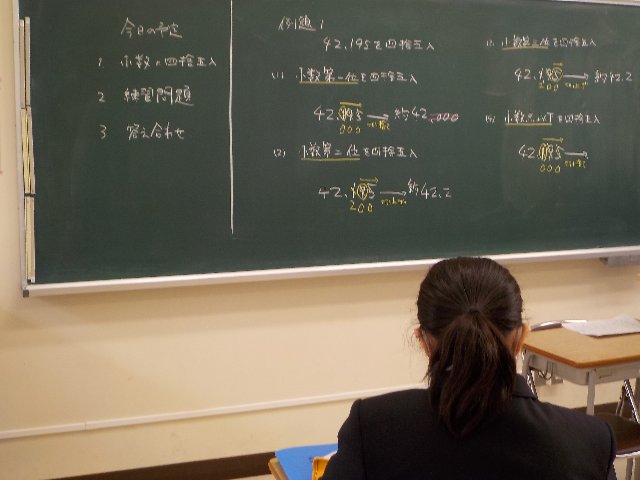 今日の予定
1 小数の四捨五入
2 練習問題
3 答え合わせ
例題1
42.195を四捨五入
(1) 小数第一位を四捨五入
42.195 → 約42.000
000
(2) 小数第二位を四捨五入
42.195 → 約42.2
200
小数第三位を四捨五入
42.195 → 約42.2
200
(4) 小数点以下を四捨五入
42.195 →
000